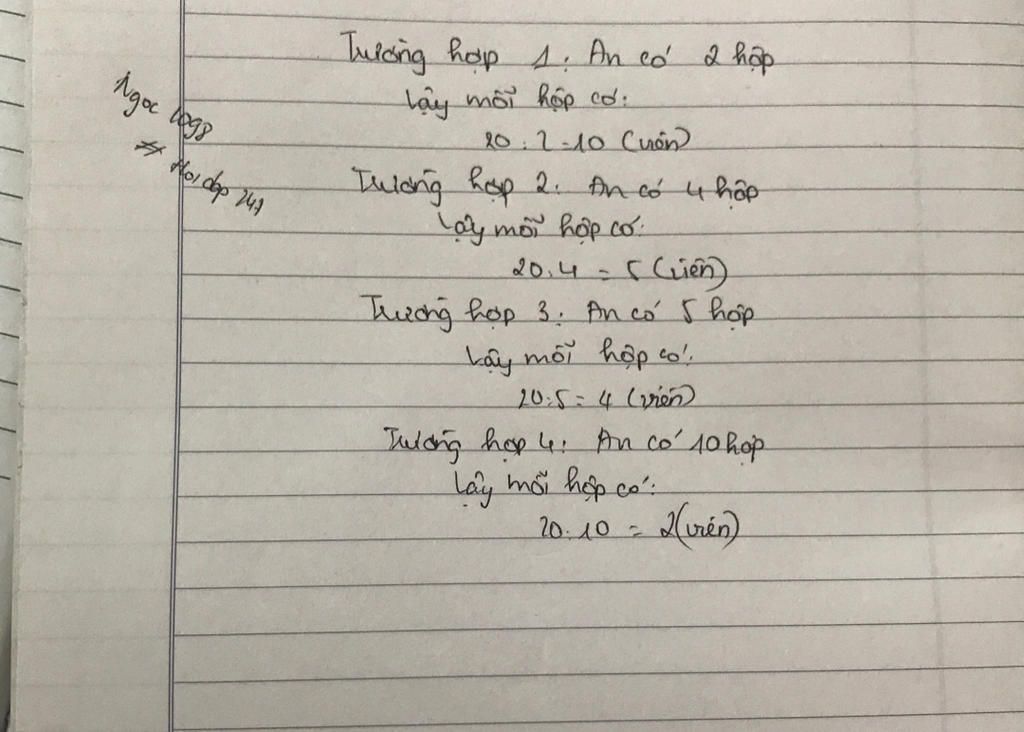 Trường hợp 1: An có 2 hộp
Vậy mỗi hộp có:
20 : 2 = 10 (viên)
Trường hợp 2: An có 4 hộp
Vậy mỗi hộp có:
20 : 4 = 5 (viên)
Trường hợp 3: An có 5 hộp
Vậy mỗi hộp có:
20 : 5 = 4 (viên)
Trường hợp 4: An có 10 hộp
Vậy mỗi hộp có:
20 : 10 = 2 (viên)
Ngoc 1098
Hoi dap 247